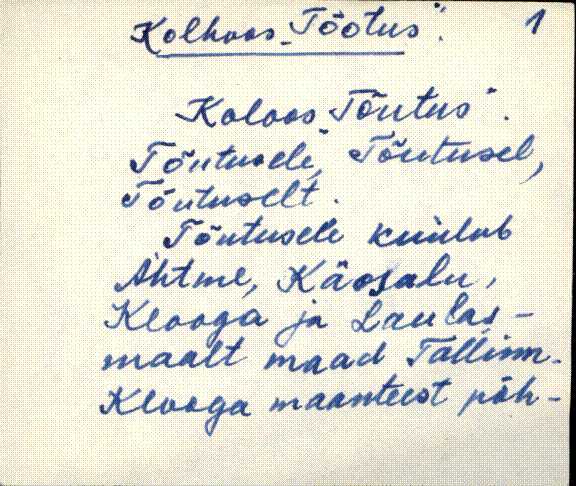 Kolhoos „Tõotus".
1
Koloos „Tõutus".
Tõutusele, Tõutusel,
Tõutuselt.
Tõutusele kuulub
Ähtme, Käosalu,
Klooga ja Laulas-
maalt maad Tallinn-
Klooga maanteest põh-